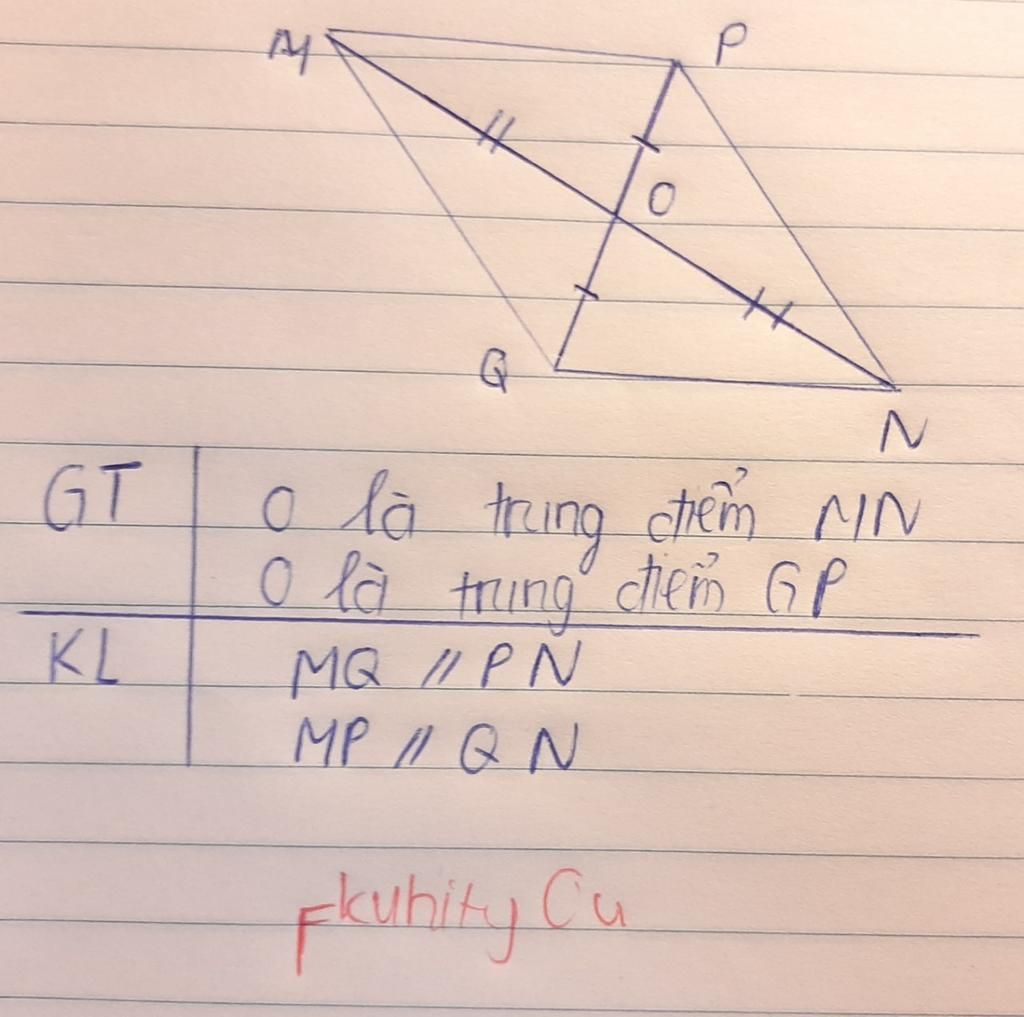 M
P
O
Q
N
GT
O là trung điểm MN
O là trung điểm GP
KL
MQ // PN
MP // QN